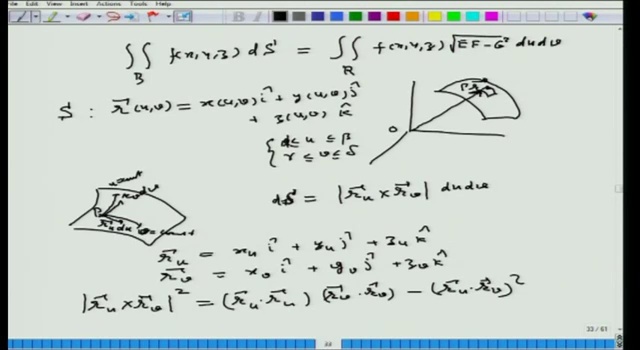 File Edit View Insert Actions Tools Help
∬_B f(x,y,z) dS = ∬_R f(x,y,z) √(EF-G²) du dv
S : r⃗(u,v) = x(u,v) î + y(u,v) ĵ
+ z(u,v) k̂
{ α ≤ u ≤ β
γ ≤ v ≤ δ
O
P
dS = |r⃗_u × r⃗_v| du dv
u const
r⃗_v dv
P
r⃗_u du v = const
r⃗_u = x_u î + y_u ĵ + z_u k̂
r⃗_v = x_v î + y_v ĵ + z_v k̂
|r⃗_u × r⃗_v|² = (r⃗_u · r⃗_u) (r⃗_v · r⃗_v) − (r⃗_u · r⃗_v)²
33/61
33